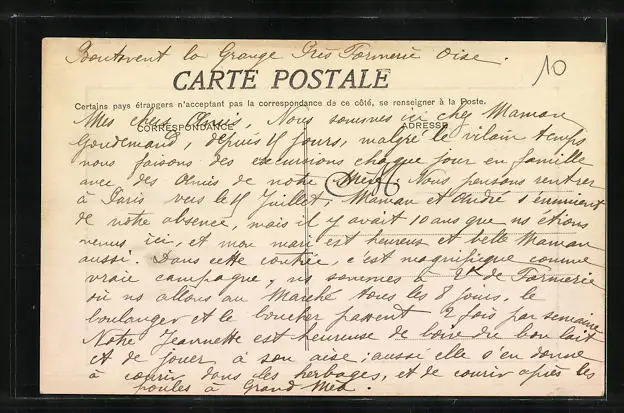 Boutavent la Grange Près Formerie Oise.
10
CARTE POSTALE
Certains pays étrangers n'acceptant pas la correspondance de ce côté, se renseigner à la Poste.
CORRESPONDANCE
ADRESSE
Mes chers Amis, Nous sommes ici chez Maman
depuis 15 jours, malgré le vilain temps
nous faisons des excursions chaque jour en famille
avec des Amis de notre Nous pensons rentrer
à Paris vers le 15 Juillet, Maman et André s'ennuient
de notre absence, mais il y avait 10 ans que ns étions
venus ici, et mon mari est heureux et belle Maman
aussi. Dans cette contrée, c'est magnifique comme
vraie campagne, ns sommes à de Formerie
où ns allons au Marché tous les 8 jours, le
boulanger et le boucher passent 2 fois par semaine
Notre Jeannette est heureuse de boire du bon lait
et de jouer à son aise; aussi elle s'en donne
à courir dans les herbages, et de courir après les
poules à Grand Méa.